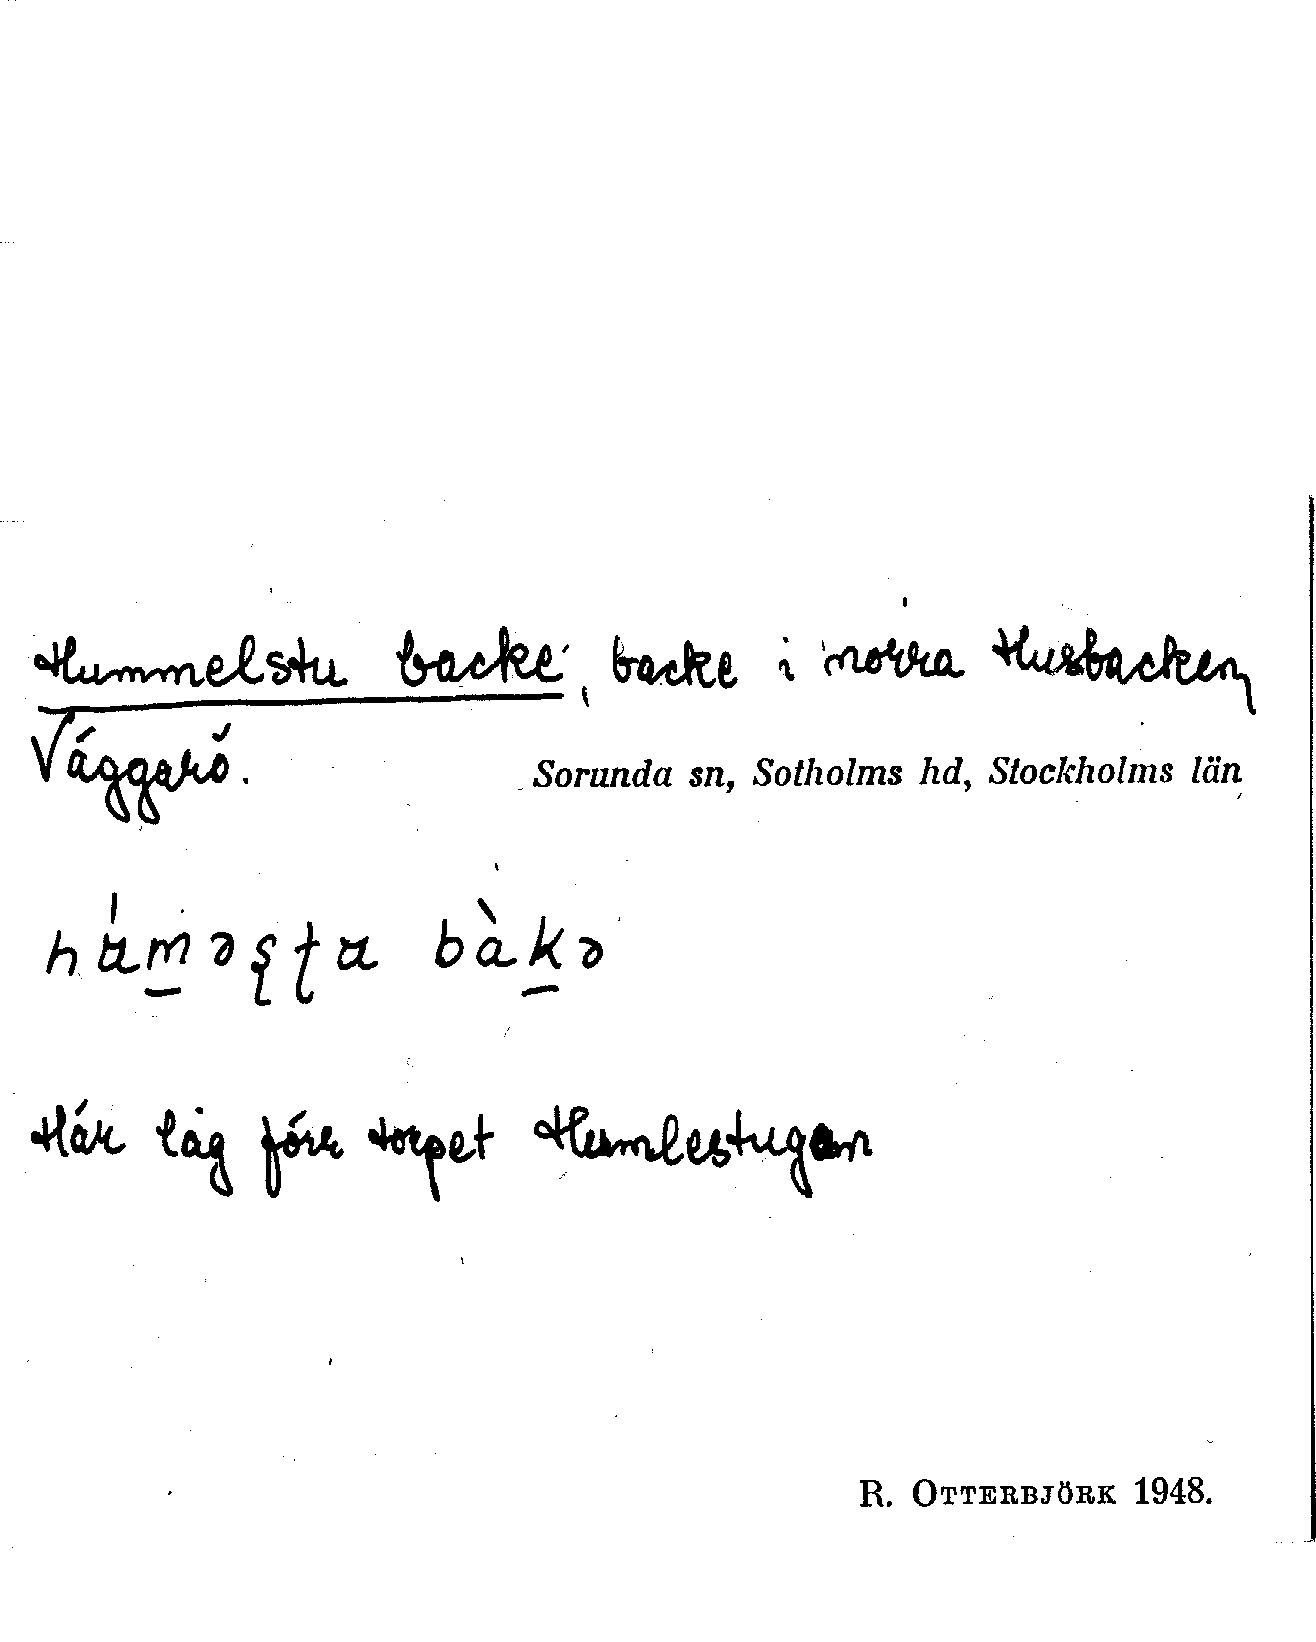 Hummelstu backe, backe i norra Husbacken,
Väggarö.
Sorunda sn, Sotholms hd, Stockholms län
Här låg förr torpet Humlestugan
R. OTTERBJÖRK 1948.